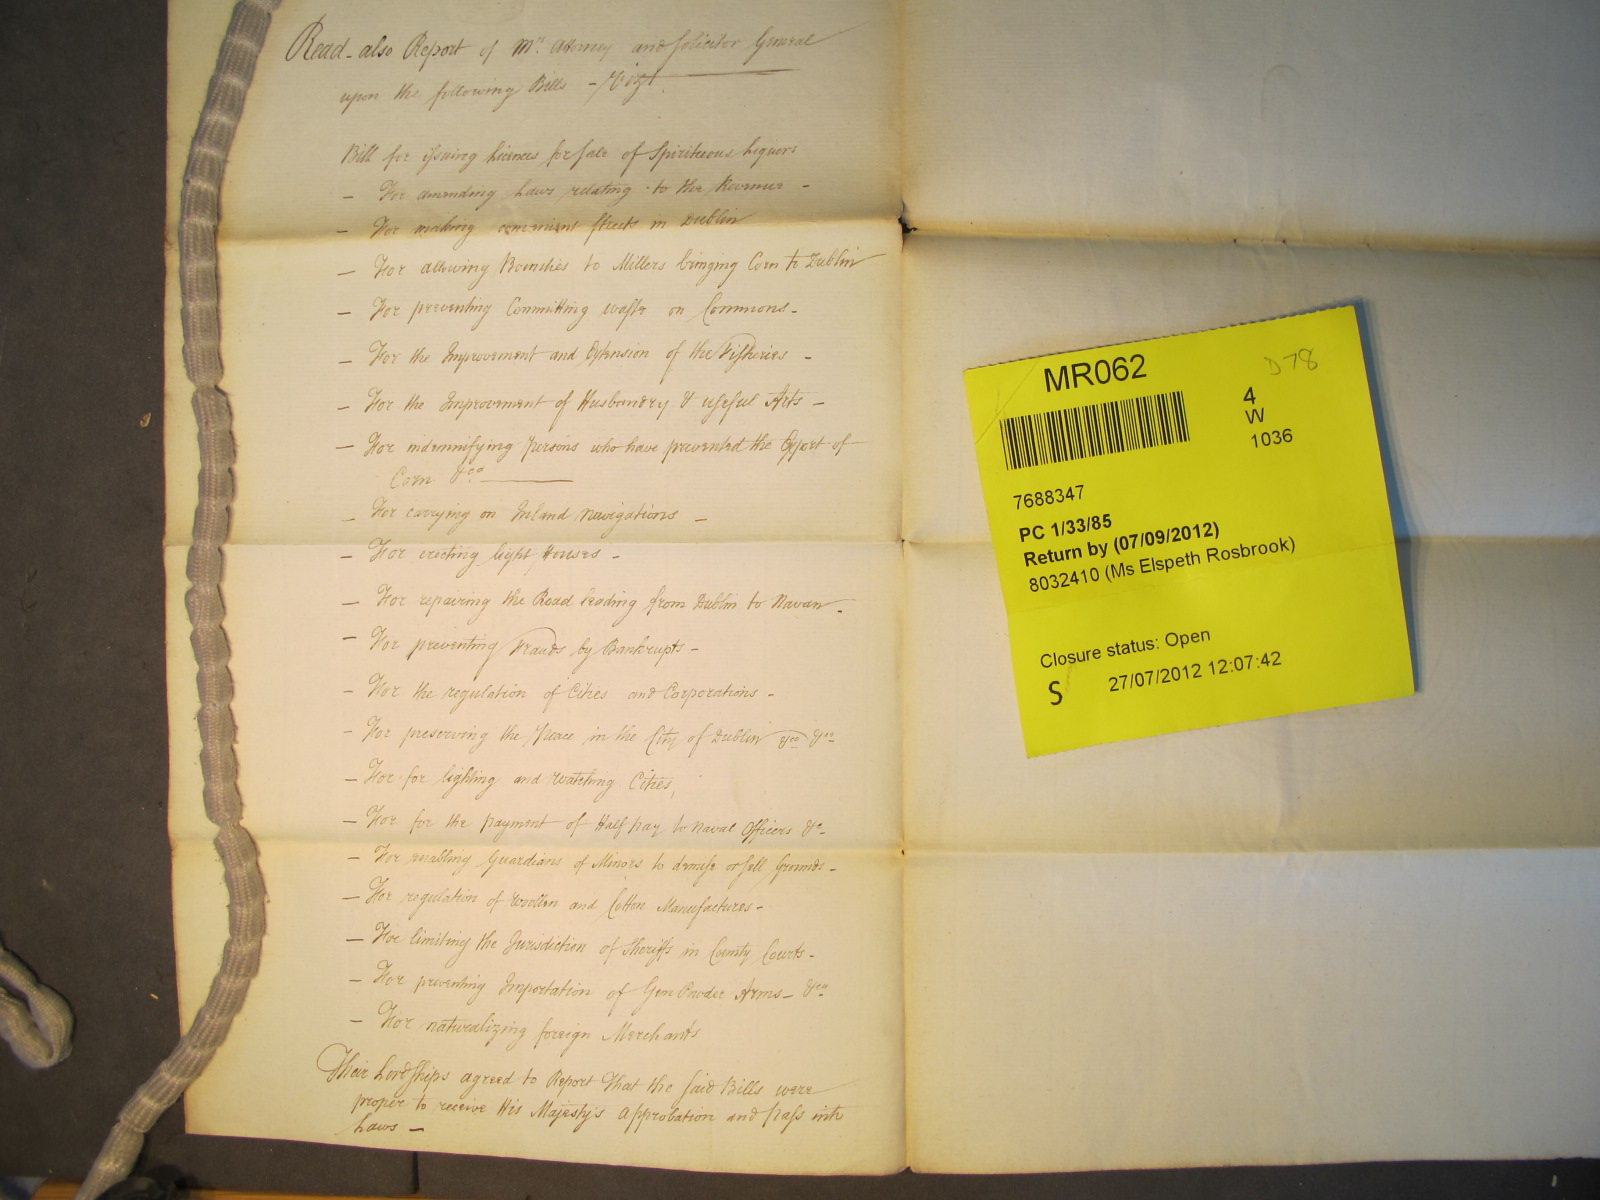 Read also Report of Mr. Attorney and Solicitor General
upon the following Bills - Vizt.
Bill for issuing Licences for Sale of Spirituous Liquors
— For amending Laws relating to the Revenue -
— For making convenient Streets in Dublin
— For allowing Bounties to Millers bringing Corn to Dublin
— For preventing Committing waste on Commons -
— For the Improvement and Extension of the Fisheries -
— For the Improvement of Husbandry & useful Arts -
— For indemnifying Persons who have prevented the Export of
Corn &ca
— For carrying on Inland Navigations -
— For erecting light Houses -
— For repairing the Road leading from Dublin to Navan -
— For preventing Frauds by Bankrupts -
— For the regulation of Cities and Corporations -
— For preserving the Peace in the City of Dublin &ca &ca
— For for lighting and Watching Cities,
— For for the payment of Half pay to Naval Officers &c -
— For enabling Guardians of Minors to demise or sell Grounds -
— For regulation of Woollen and Cotton Manufactures -
— For limiting the Jurisdiction of Sheriffs in County Courts -
— For preventing Importation of Gun Powder Arms - &ca
— For naturalizing foreign Merchants
Their Lordships agreed to Report That the said Bills were
proper to receive His Majesty's approbation and pass into
Laws —
MR062
D78
4
W
1036
7688347
PC 1/33/85
Return by (07/09/2012)
8032410 (Ms Elspeth Rosbrook)
Closure status: Open
S 27/07/2012 12:07:42